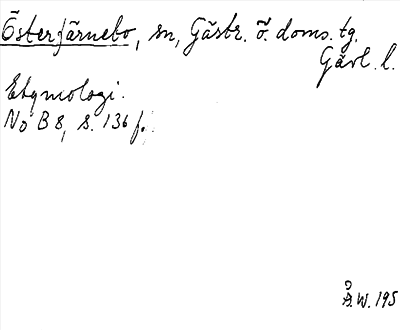 Österfärnebo, sn, Gästr. ö. doms. tg.
Gävl. l.
Etymologi.
No B 8, s. 136 f.
Å.W. 195